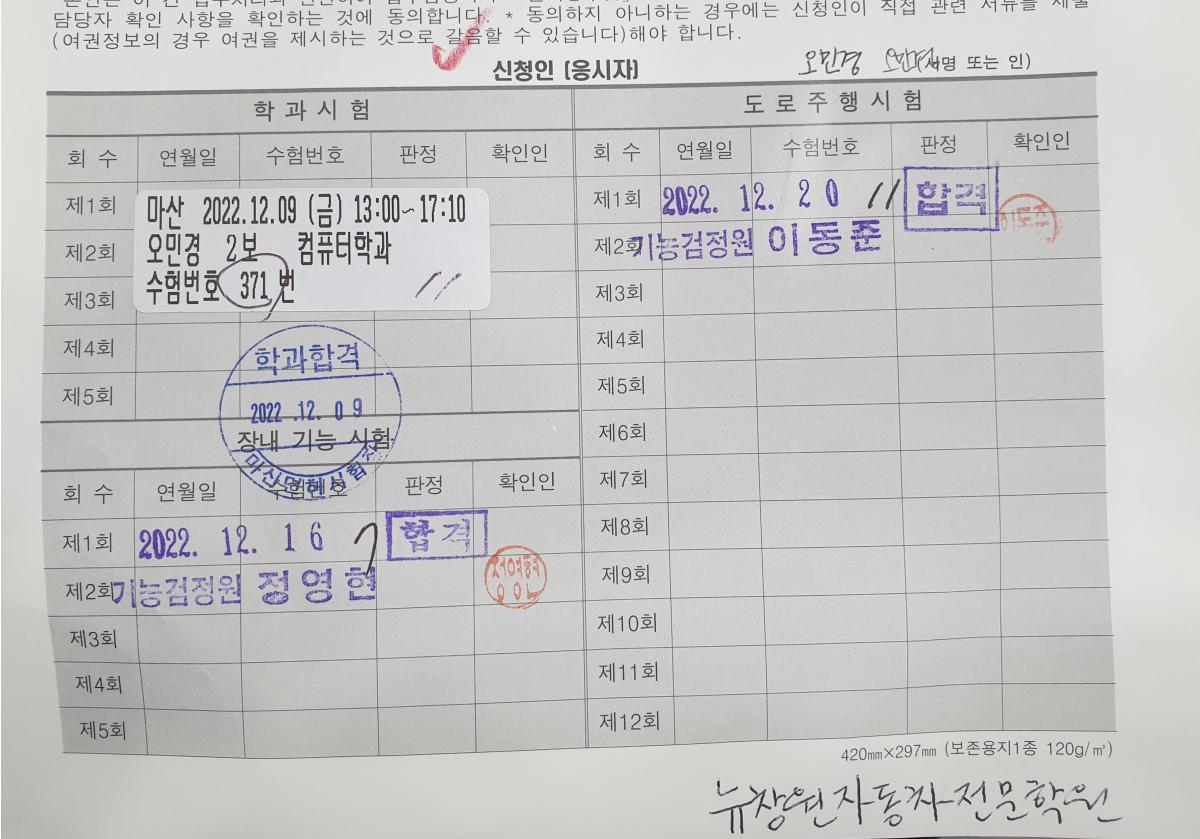 담당자 확인 사항을 확인하는 것에 동의합니다. * 동의하지 아니하는 경우에는 신청인이 직접 관련 서류를 제출
(여권정보의 경우 여권을 제시하는 것으로 갈음할 수 있습니다)해야 합니다.
신청인 (응시자) 오민경 (서명 또는 인)
학 과 시 험
회 수 연월일 수험번호 판정 확인인
제1회
제2회
제3회
제4회
제5회
마산 2022.12.09 (금) 13:00~17:10
오민경 2보 컴퓨터학과
수험번호 371 번
학과합격
2022 .12. 09
장내 기능 시험
회 수 연월일 수험번호 판정 확인인
제1회 2022. 12. 16 7 합격
제2회 기능검정원 정영현
제3회
제4회
제5회
도 로 주 행 시 험
회 수 연월일 수험번호 판정 확인인
제1회 2022. 12. 20 11 합격
제2회 기능검정원 이동준
제3회
제4회
제5회
제6회
제7회
제8회
제9회
제10회
제11회
제12회
420㎜×297㎜ (보존용지1종 120g/㎡)
뉴창원자동차전문학원